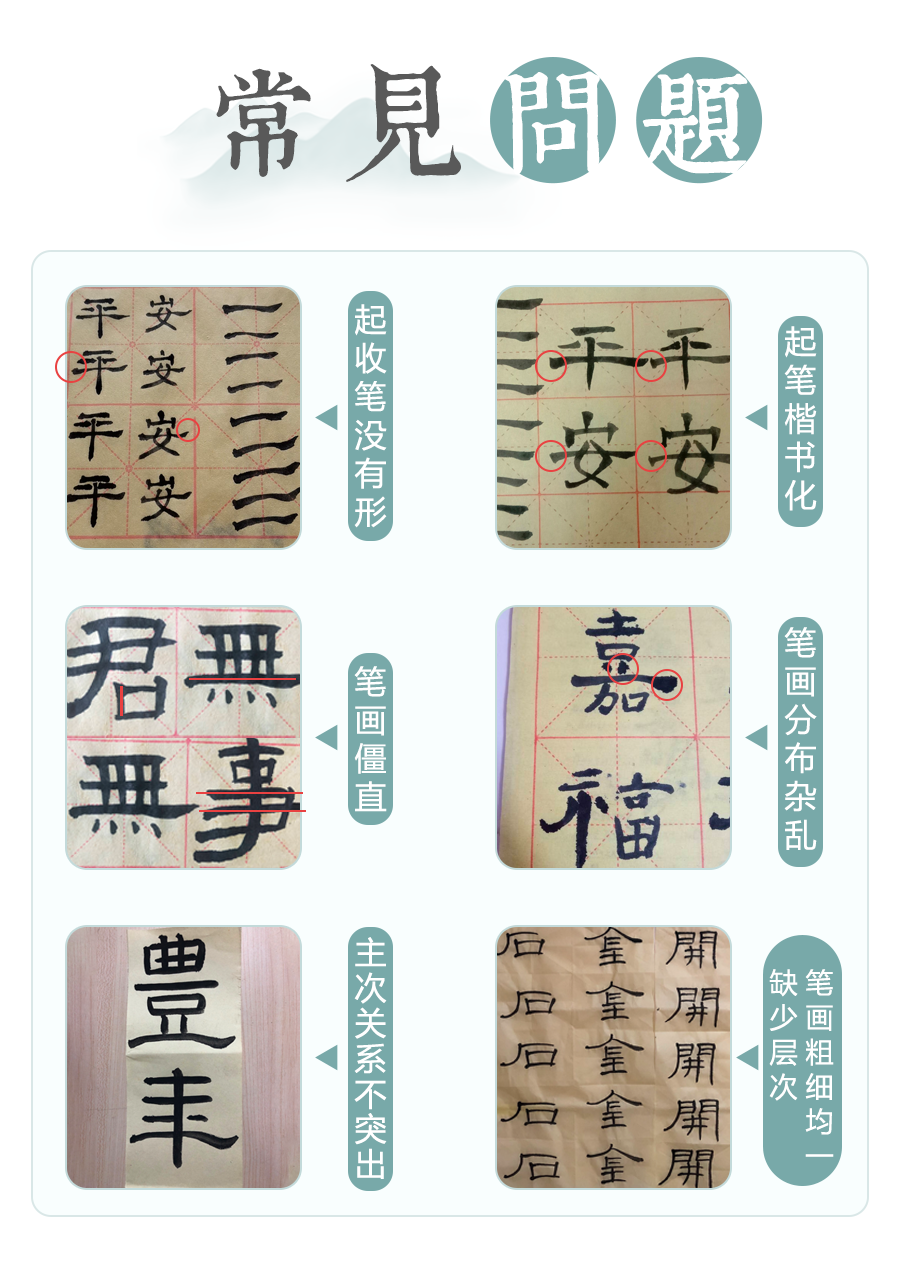 常見問題
平安一
平安一
平安一
平安一
起收笔没有形
平平
安安
起笔楷书化
君無
無事
笔画僵直
嘉
福
笔画分布杂乱
豐
主次关系不突出
石金開
石金開
石金開
石金開
石金開
笔画粗细均一
缺少层次